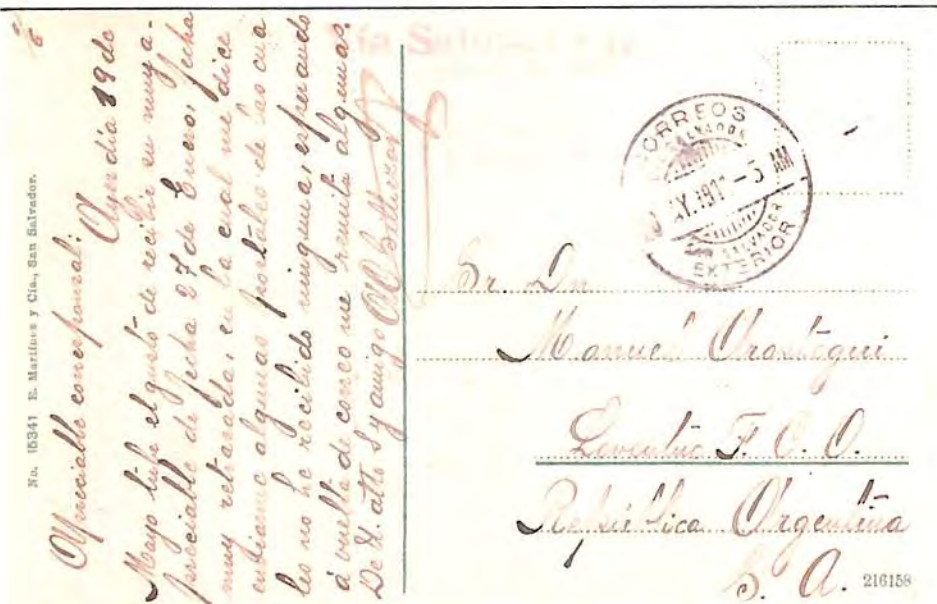 No. 15341 E. Martínez y Cía., San Salvador.
Apreciable corresponsal:
Ayer día 19 de
Mayo tube el gusto de recibir su muy a-
preciable de fecha 27 de Enero, fecha
muy retrasada, en la cual me dice
enbiarme algunas postales de las cua
les no he recibido ninguna, esperando
á vuelta de correo me remita algunas.
De U. atto S. y amigo
CORREOS
SALVADOR
MY. 1911 - 5 AM
EL SALVADOR
EXTERIOR
Sr. Dn
Manuel
F. C. O.
República Argentina
S. A.
216158